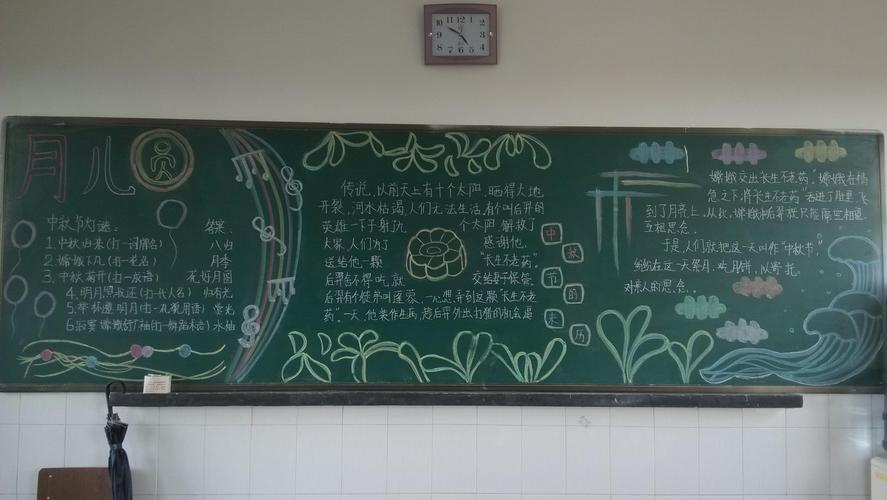 月儿圆
中秋节灯谜: 答案:
1.中秋归来(打一词牌名) 八归
2.嫦娥下凡(打一花名) 月季
3.中秋菊开(打一成语) 花好月圆
4.明月照我还(打一代人名) 归有光
5.举杯邀明月(打一礼貌用语) 赏光
6.寂寞嫦娥舒广袖(打一舞蹈术语) 水袖
传说,从前天上有十个太阳,晒得大地
开裂,河水枯竭,人们无法生活,有个叫后羿的
英雄一下子射九个太阳,解救了
大家,人们为了感谢他,
送给他一颗"长生不老药"。
后羿舍不得吃,就交给妻子保管。
后羿有个徒弟叫蓬蒙,一心想弄到这颗"长生不老
药"。一天,他装作生病,趁后羿外出打猎的机会逼
中秋节的来历
嫦娥交出长生不老药。嫦娥在情
急之下,将"长生不老药"丢进了肚里,飞
到了月亮上,从此,嫦娥和后羿就只能隔空相望
互相思念。
于是人们就把这一天叫作"中秋节,"
纷纷在这一天祭月,吃月饼,以寄托
对亲人的思念。
10 11 12 1 2 3 4 5 6 7 8 9